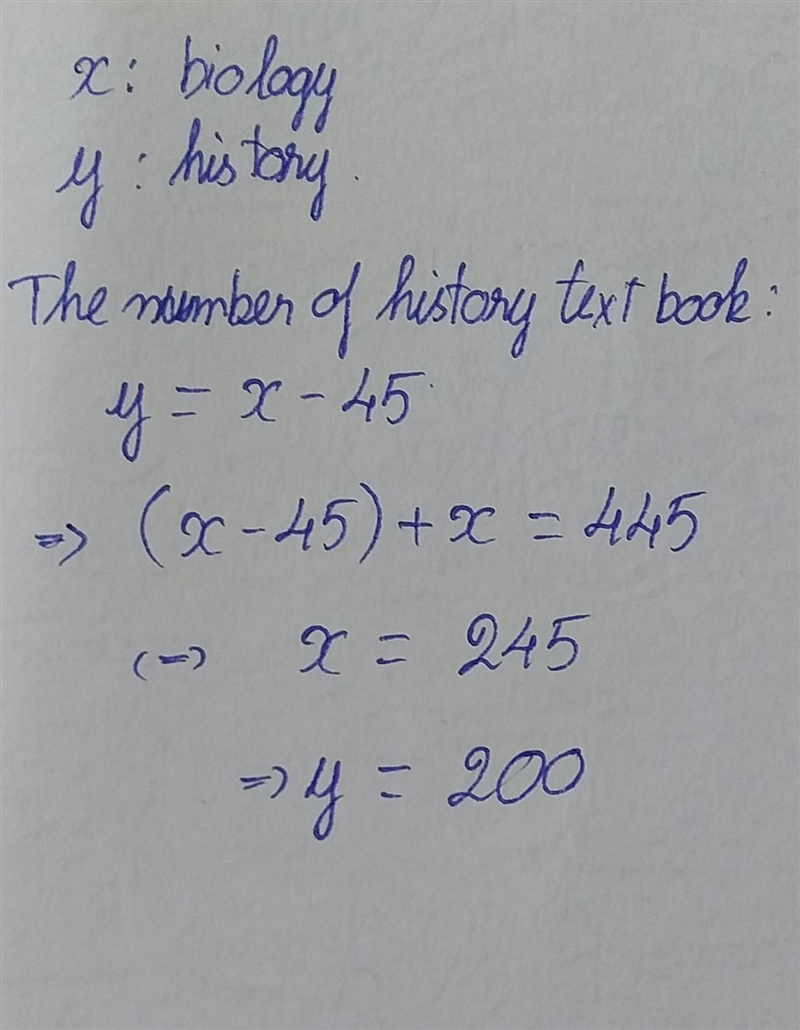 x: biology
y: history.
The number of history text book:
y = x - 45
=> (x - 45) + x = 445
(=) x = 245
=> y = 200